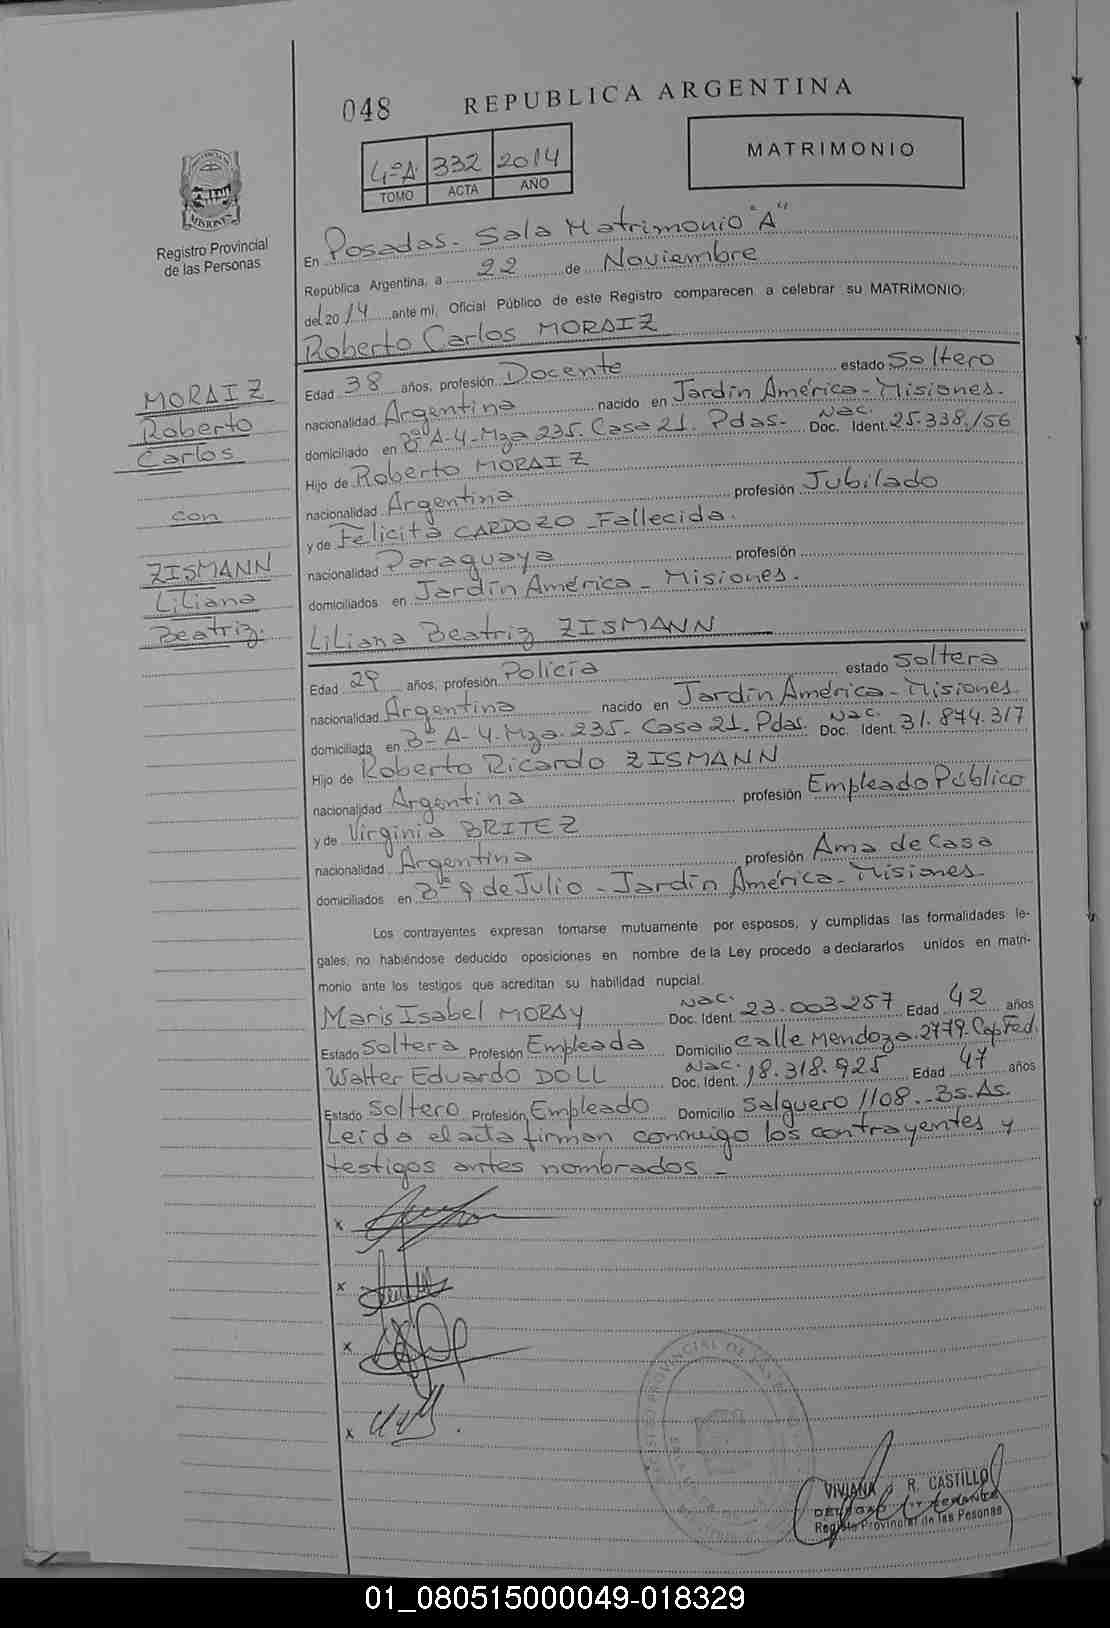 048 REPUBLICA ARGENTINA
4ºA 332 2014
TOMO ACTA AÑO
MATRIMONIO
MISIONES
Registro Provincial
de las Personas
En Posadas. Sala Matrimonio "A"
República Argentina, a 22 de Noviembre
del 2014 ante mi, Oficial Público de este Registro comparecen a celebrar su MATRIMONIO:
Roberto Carlos MORAIZ
MORAIZ
Roberto
Carlos
con
ZISMANN
Liliana
Beatriz.
Edad 38 años, profesión Docente estado Soltero
nacionalidad Argentina nacido en Jardín América - Misiones.
domiciliado en Bº A-4-Mza 235. Casa 21. Pdas. Nac. Doc. Ident. 25.338.156
Hijo de Roberto MORAIZ
nacionalidad Argentina profesión Jubilado
y de Felicita CARDOZO - Fallecida.
nacionalidad Paraguaya profesión
domiciliados en Jardín América - Misiones.
Liliana Beatriz ZISMANN
Edad 29 años, profesión Policía estado Soltera
nacionalidad Argentina nacido en Jardín América - Misiones
domiciliada en Bº A-4-Mza. 235. Casa 21. Pdas. Nac. Doc. Ident. 31.874.317
Hijo de Roberto Ricardo ZISMANN
nacionalidad Argentina profesión Empleado Público
y de Virginia BRITEZ
nacionalidad Argentina profesión Ama de Casa
domiciliados en Bº 9 de Julio - Jardín América - Misiones
Los contrayentes expresan tomarse mutuamente por esposos, y cumplidas las formalidades le-
gales, no habiéndose deducido oposiciones en nombre de la Ley procedo a declararlos unidos en matri-
monio ante los testigos que acreditan su habilidad nupcial.
Maris Isabel MORAY Nac. Doc. Ident. 23.003.257 Edad 42 años
Estado Soltera Profesión Empleada Domicilio Calle Mendoza. 2779. Cap Fed.
Walter Eduardo DOLL Nac. Doc. Ident. 18.318.925 Edad 47 años
Estado Soltero Profesión Empleado Domicilio Salguero 1108. Bs. As.
Leída el acta firman conmigo los contrayentes y
testigos antes nombrados -
x
x
x
x
VIVIANA R. CASTILLO
Registro Provincial de las Pesonas
01_080515000049-018329